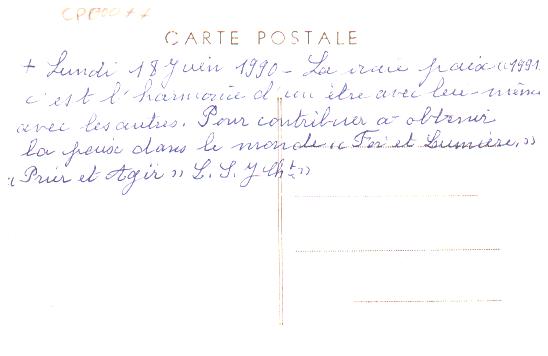 CARTE POSTALE
+ Lundi 18 Juin 1990 - La vraie paix (1991
c'est l'harmonie d'un être avec lui-même
avec les autres. Pour contribuer à obtenir
la paix dans le monde « Foi et Lumière, »
« Prier et Agir » L. S. J Cht »